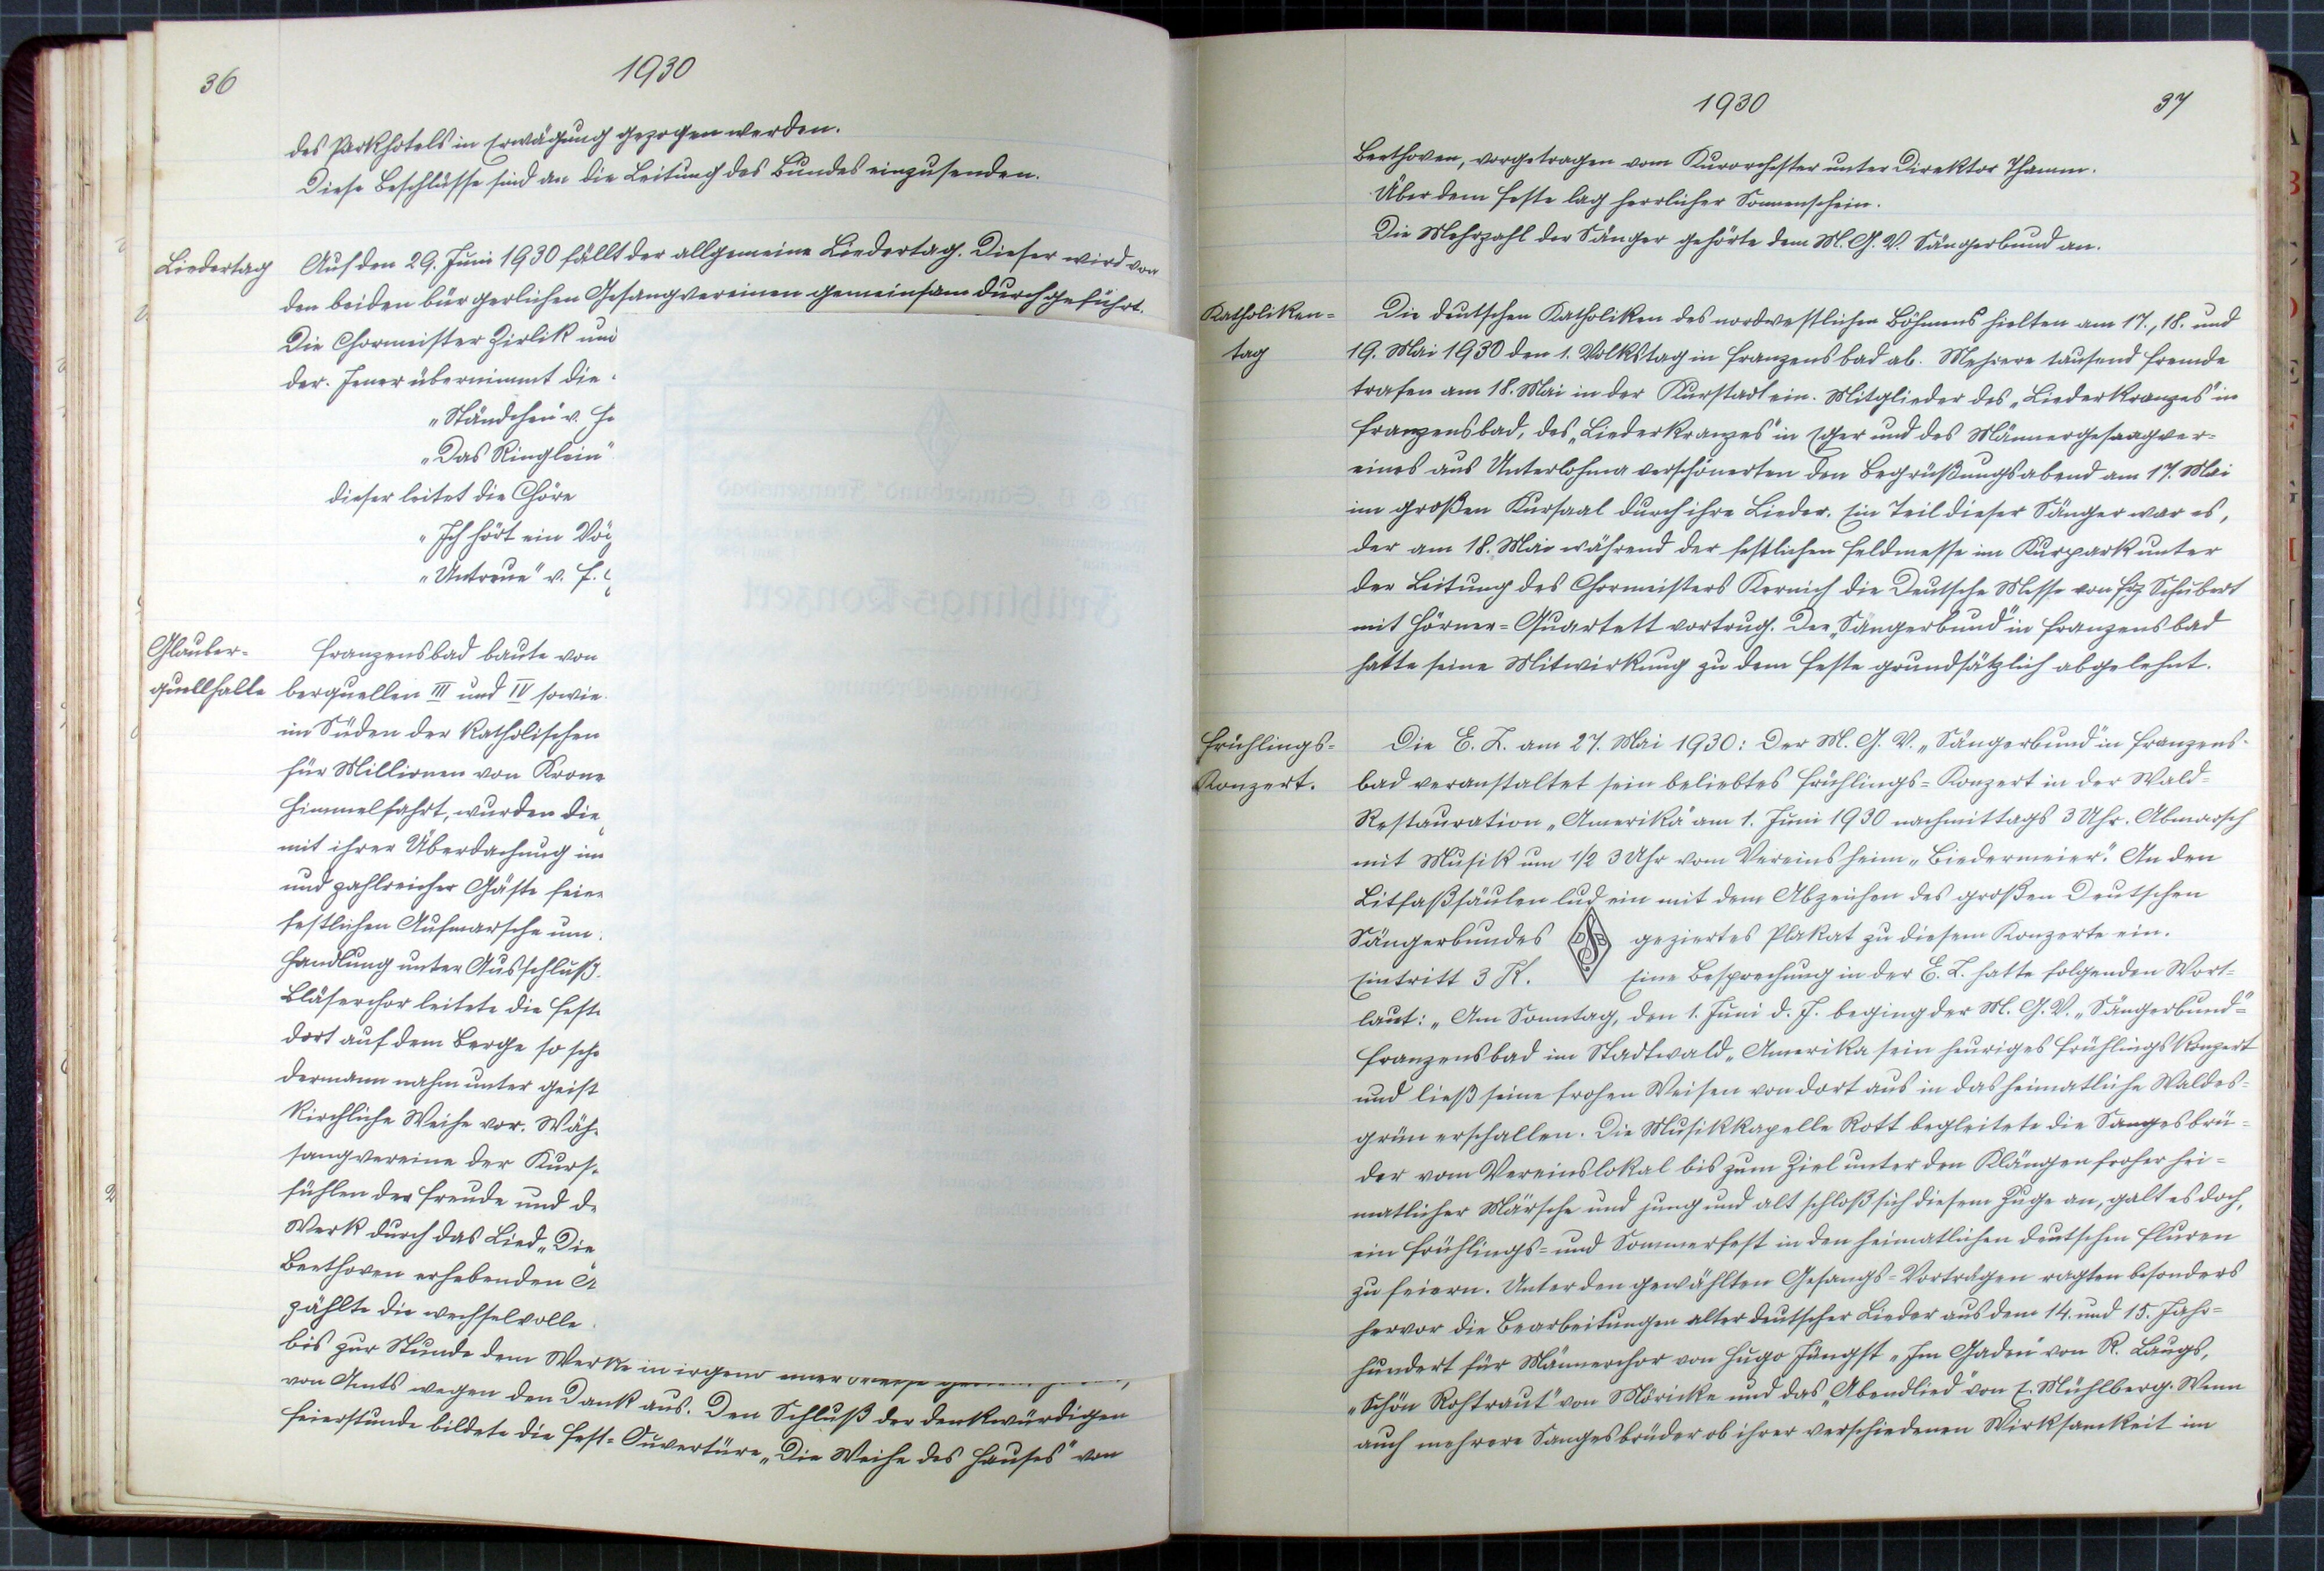 36
1930
des Parkhotels in Erwägung gezogen werden.
Diese Beschlüsse sind an die Leitung des Bundes einzusenden.
Liedertag
Auf den 29. Juni 1930 fällt der allgemeine Liedertag. Dieser wird von
den beiden bürgerlichen Gesangvereinen gemeinsam durchgeführt.
Die Chormeister Zirlik und
der. Jener übernimmt die
„Ständchen" v. He
„Das Ringlein"
dieser leitet die Chöre
„Ich hört ein Vög
„Untreue" v. F.
Glauber-
quellhalle
Franzensbad baute von
berquellen III und IV sowie
im Süden der katholischen
für Millionen von Krone
Himmelfahrt, wurden die
mit ihrer Überdachung im
und zahlreicher Gäste feier
festlichen Aufmarsche um
Handlung unter Ausschluß
Bläserchor leitete die Fest
dort auf dem Berge so sch
dermann nahm unter geist
kirchliche Weihe vor. Wäh-
sangvereine der Kurs-
fühlen der Freude und d
Werk durch das Lied „Die
Beethoven erhebenden A
zählte die wechselvolle
bis zur Stunde dem Werke in irgend einer Weise
von Amts wegen den Dank aus. Den Schluß der denkwürdigen
Feierstunde bildete die Fest-Ouvertüre „Die Weihe des Hauses" von
1930
37
Beethoven, vorgetragen vom Kurorchester unter Direktor Thamm.
Über dem Feste lag herrlicher Sonnenschein.
Die Mehrzahl der Sänger gehörte dem M. G. V. Sängerbund an.
Katholiken-
tag
Die deutschen Katholiken des nordwestlichen Böhmens hielten am 17., 18. und
19. Mai 1930 den 1. Volkstag in Franzensbad ab. Mehrere tausend Fremde
trafen am 18. Mai in der Kurstadt ein. Mitglieder des „Liederkranzes" in
Franzensbad, des „Liederkranzes" in Eger und des Männergesangver-
eines aus Unterlohma verschönerten den Begrüßungsabend am 17. Mai
im großen Kursaal durch ihre Lieder. Ein Teil dieser Sänger war es,
der am 18. Mai während der festlichen Feldmesse im Kurpark unter
der Leitung des Chormeisters Kernich die Deutsche Messe von Frz Schubert
mit Hörner-Quartett vortrug. Der „Sängerbund" in Franzensbad
hatte seine Mitwirkung zu dem Feste grundsätzlich abgelehnt.
Frühlings-
Konzert.
Die E. Z. am 27. Mai 1930: Der M. G. V. „Sängerbund" in Franzens-
bad veranstaltet sein beliebtes Frühlings-Konzert in der Wald-
Restauration „Amerika" am 1. Juni 1930 nachmittags 3 Uhr. Abmarsch
mit Musik um 1/2 3 Uhr vom Vereinsheim „Biedermeier". An den
Litfaßsäulen lud ein mit dem Abzeichen des großen Deutschen
Sängerbundes DSB geziertes Plakat zu diesem Konzerte ein.
Eintritt 3 K. Eine Besprechung in der E. Z. hatte folgenden Wort-
laut: „Am Sonntag, den 1. Juni d. J. beging der M. G. V. „Sängerbund"-
Franzensbad im Stadtwald „Amerika sein heuriges Frühlingskonzert
und ließ seine frohen Weisen von dort aus in das heimatliche Waldes-
grün erschallen. Die Musikkapelle Rott begleitete die Sangesbrü-
der vom Vereinslokal bis zum Ziel unter den Klängen froher hei-
matlicher Märsche und jung und alt schloß sich diesem Zuge an, galt es doch,
ein Frühlings- und Sommerfest in den heimatlichen deutschen Fluren
zu feiern. Unter den gewählten Gesangs-Vorträgen ragten besonders
hervor die Bearbeitungen alter deutscher Lieder aus dem 14. und 15. Jahr-
hundert für Männerchor von Hugo Jüngst „Im Gaden" von R. Laugs,
„Schön Rohtraut" von Möricke und das „Abendlied" von E. Mühlberg. Wenn
auch mehrere Sangesbrüder ob ihrer verschiedenen Wirksamkeit im